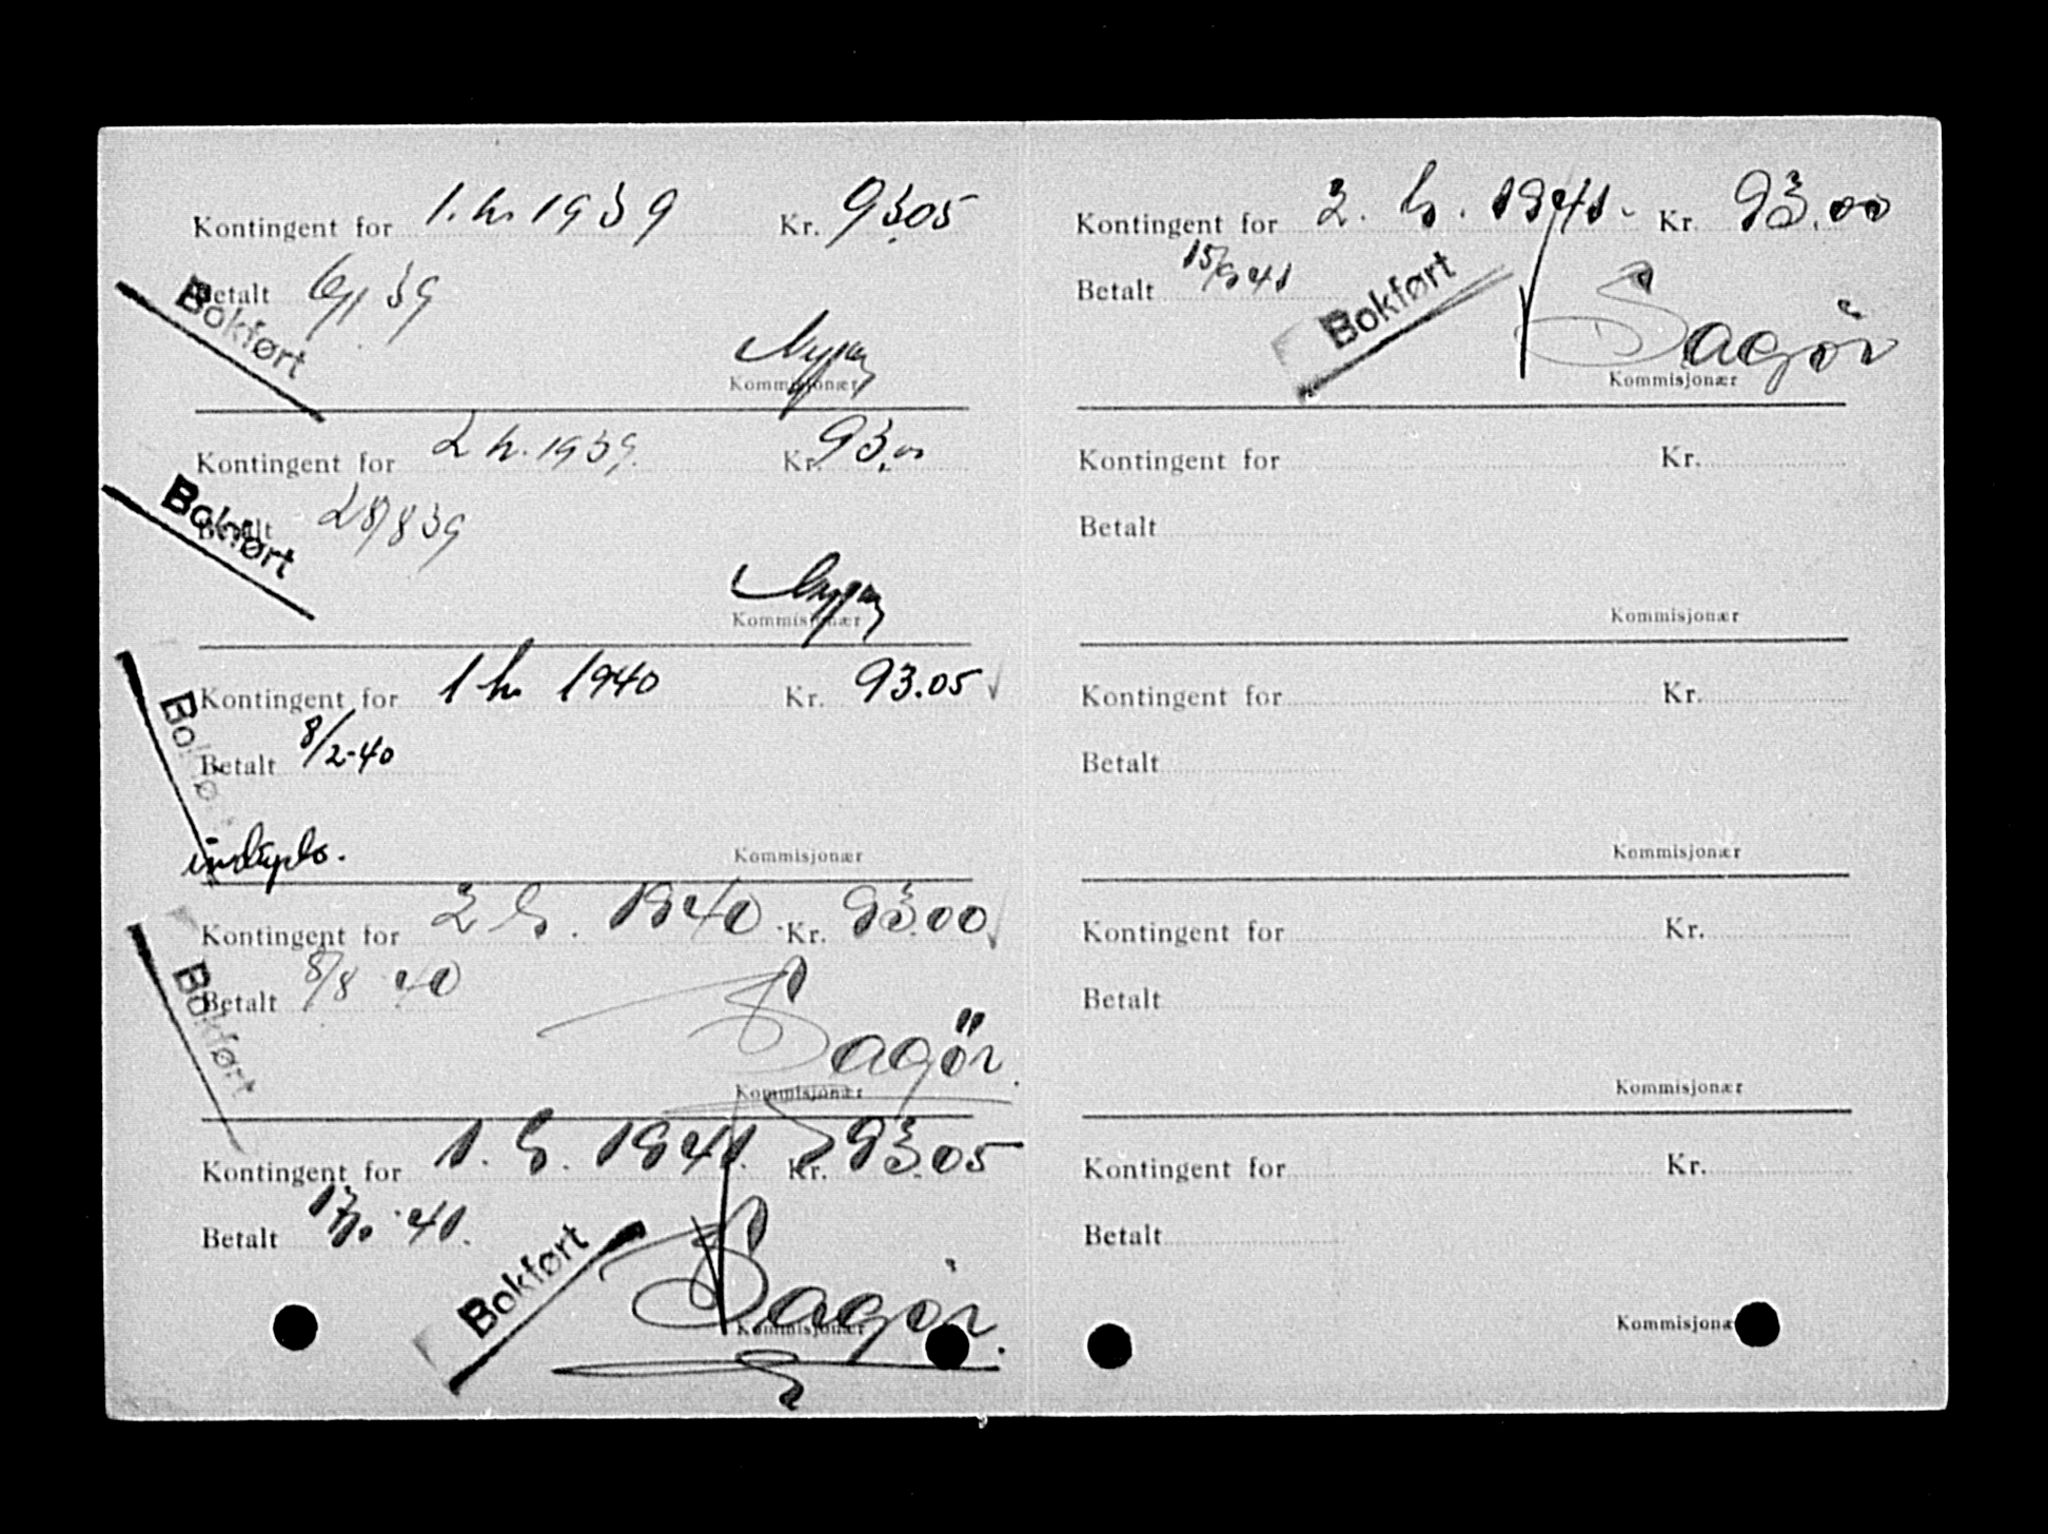 Kontingent for 1. h. 1939 Kr. 93.05
Betalt 6/1 39
Bokført
Kommisjonær
Kontingent for 2 h. 1939. Kr. 93.00
Betalt 28/8 39
Bokført
Kommisjonær
Kontingent for 1 h. 1940 Kr. 93.05
Betalt 8/2-40
Kommisjonær
Kontingent for 2 h. 1940 Kr. 93.00
Betalt 8/8 40
Bokført
Sagör.
Kommisjonær
Kontingent for 1. h. 1941. Kr. 93.05
Betalt 41.
Bokført
Sagör.
Kommisjonær
Kontingent for 2. h. 1941. Kr. 93.00
Betalt 15/9 41
Bokført
Sagör
Kommisjonær
Kontingent for Kr.
Betalt
Kommisjonær
Kontingent for Kr.
Betalt
Kommisjonær
Kontingent for Kr.
Betalt
Kommisjonær
Kontingent for Kr.
Betalt
Kommisjonæ